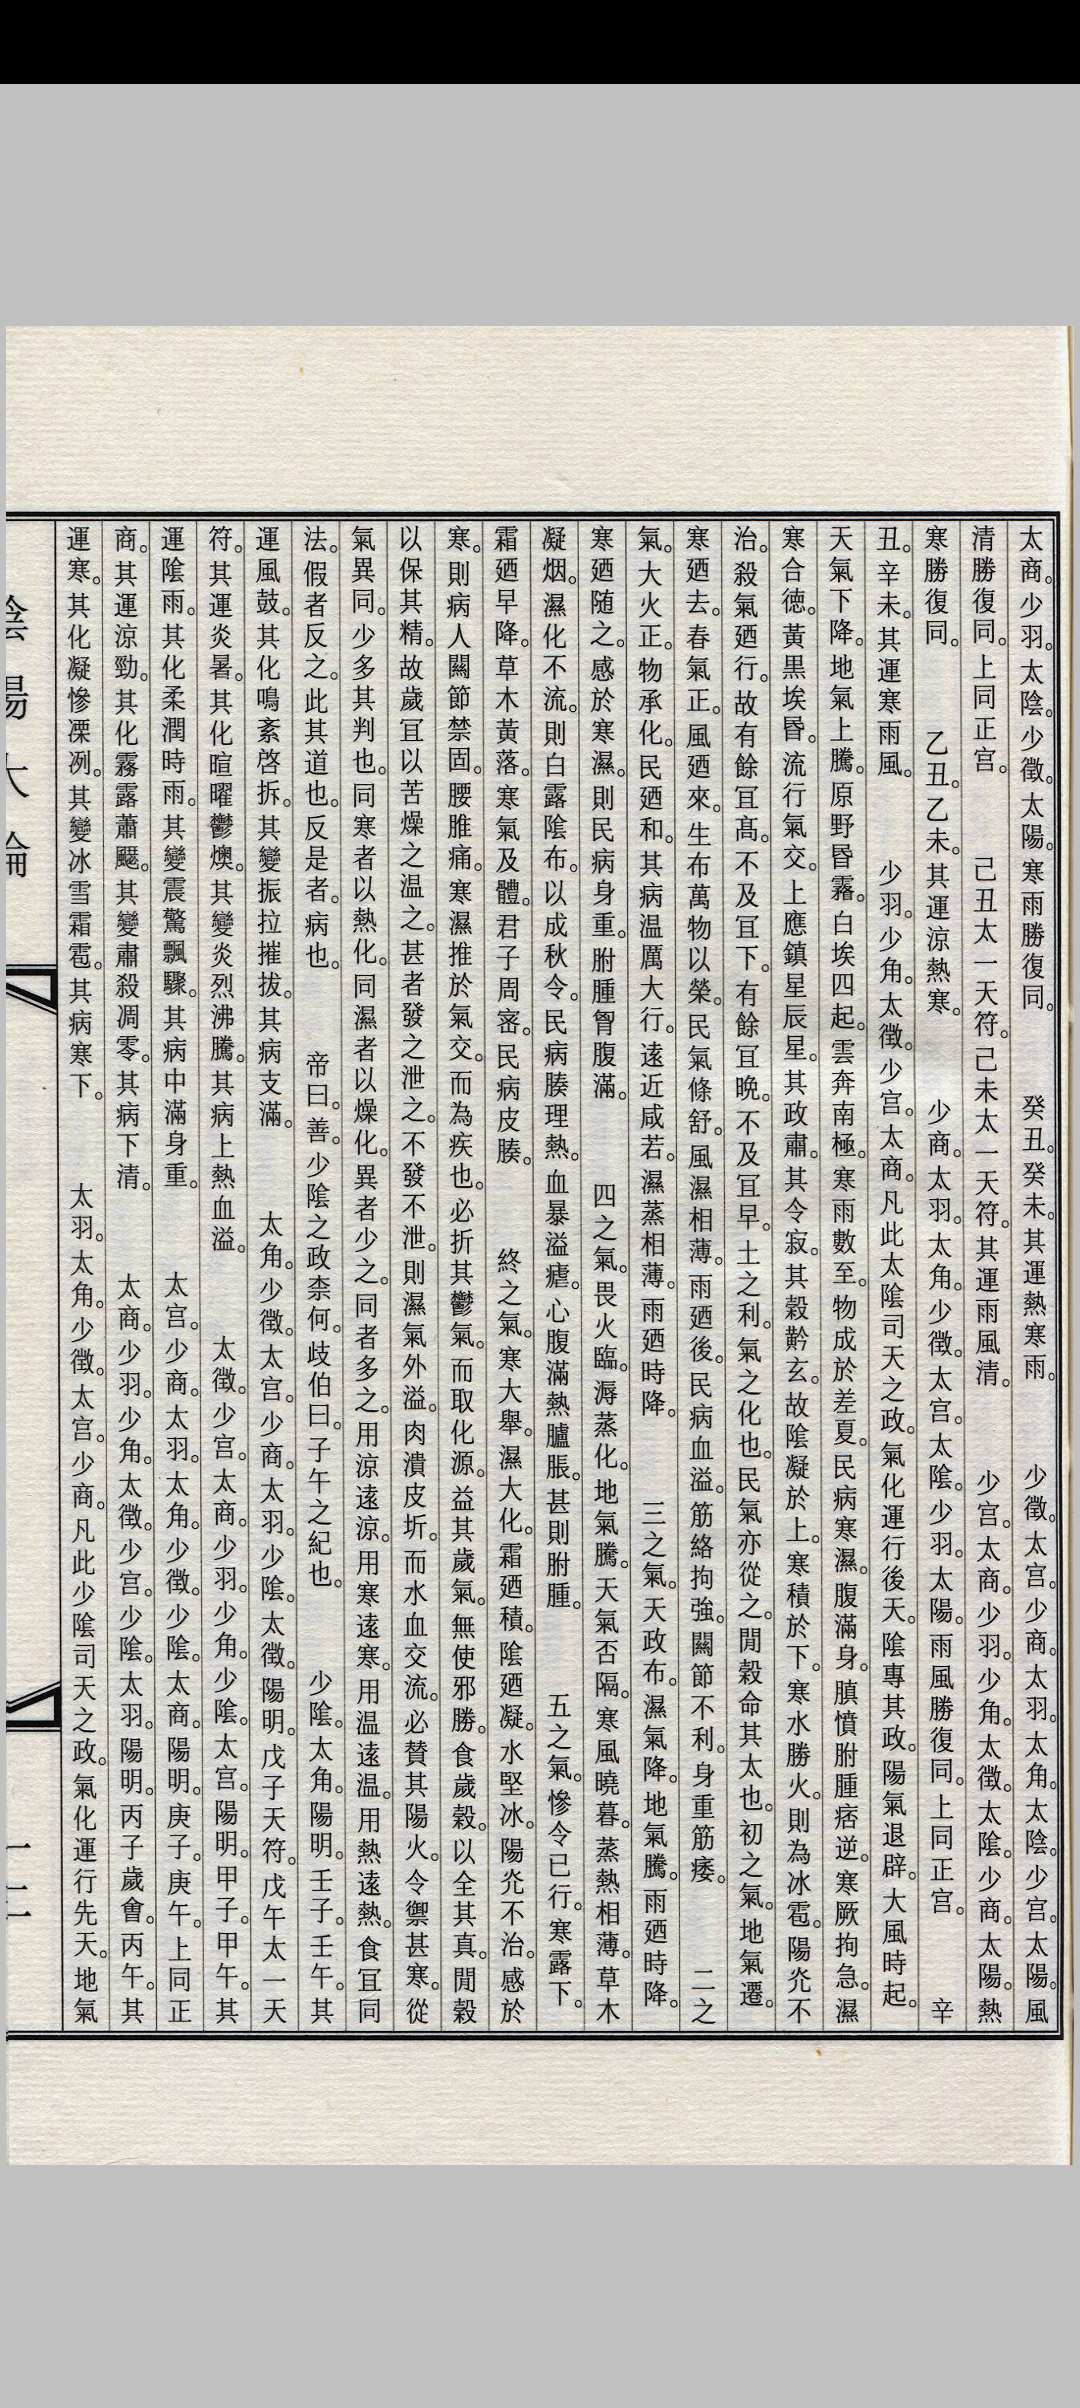 太商。少羽。太陰。少徵。太陽。寒雨勝復同。 癸丑。癸未。其運熱寒雨。 少徵。太宫。少商。太羽。太角。太陰。少宫。太陽。風
清勝復同。上同正宫。 己丑太一天符。己未太一天符。其運雨風清。 少宫。太商。少羽。少角。太徵。太陰。少商。太陽。熱
寒勝復同。 乙丑。乙未。其運涼熱寒。 少商。太羽。太角。少徵。太宫。太陰。少羽。太陽。雨風勝復同。上同正宫。 辛
丑。辛未。其運寒雨風。 少羽。少角。太徵。少宫。太商。凡此太陰司天之政。氣化運行後天。陰專其政。陽氣退辟。大風時起。
天氣下降。地氣上騰。原野昏霿。白埃四起。雲奔南極。寒雨數至。物成於差夏。民病寒濕。腹滿身䐜憤胕腫痞逆。寒厥拘急。濕
寒合德。黃黑埃昏。流行氣交。上應鎮星辰星。其政肅。其令寂。其穀黅玄。故陰凝於上。寒積於下。寒水勝火。則為冰雹。陽光不
治。殺氣廼行。故有餘冝髙。不及冝下。有餘冝晚。不及冝早。土之利。氣之化也。民氣亦從之。閒穀命其太也。初之氣。地氣遷。
寒廼去。春氣正。風廼來。生布萬物以榮。民氣條舒。風濕相薄。雨廼後。民病血溢。筋絡拘強。關節不利。身重筋痿。 二之
氣。大火正。物承化。民廼和。其病温厲大行。逺近咸若。濕蒸相薄。雨廼時降。 三之氣。天政布。濕氣降。地氣騰。雨廼時降。
寒廼随之。感於寒濕。則民病身重。胕腫胷腹滿。 四之氣。畏火臨。溽蒸化。地氣騰。天氣否隔。寒風曉暮。蒸熱相薄。草木
凝烟。濕化不流。則白露陰布。以成秋令。民病腠理熱。血暴溢瘧。心腹滿熱臚脹。甚則胕腫。 五之氣。慘令已行。寒露下。
霜廼早降。草木黃落。寒氣及體。君子周宻。民病皮腠。 終之氣。寒大舉。濕大化。霜廼積。陰廼凝。水堅冰。陽光不治。感於
寒。則病人關節禁固。腰脽痛。寒濕推於氣交。而為疾也。必折其鬱氣。而取化源。益其歲氣。無使邪勝。食歲穀。以全其真。閒穀
以保其精。故歲冝以苦燥之温之。甚者發之泄之。不發不泄。則濕氣外溢。肉潰皮坼。而水血交流。必贊其陽火。令禦甚寒。從
氣異同。少多其判也。同寒者以熱化。同濕者以燥化。異者少之。同者多之。用涼逺涼。用寒逺寒。用温逺温。用熱逺熱。食冝同
法。假者反之。此其道也。反是者。病也。 帝曰。善。少陰之政柰何。歧伯曰。子午之紀也。 少陰。太角。陽明。壬子。壬午。其
運風鼓。其化鳴紊啓拆。其變振拉摧拔。其病支滿。 太角。少徵。太宫。少商。太羽。少陰。太徵。陽明。戊子天符。戊午太一天
符。其運炎暑。其化暄曜鬱燠。其變炎烈沸騰。其病上熱血溢。 太徵。少宫。太商。少羽。少角。少陰。太宫。陽明。甲子。甲午。其
運陰雨。其化柔潤時雨。其變震驚飄驟。其病中滿身重。 太宫。少商。太羽。太角。少徵。少陰。太商。陽明。庚子。庚午。上同正
商。其運涼勁。其化霧露蕭飋。其變肅殺凋零。其病下清。 太商。少羽。少角。太徵。少宫。少陰。太羽。陽明。丙子歲會。丙午。其
運寒。其化凝慘凓冽。其變冰雪霜雹。其病寒下。 太羽。太角。少徵。太宫。少商。凡此少陰司天之政。氣化運行先天。地氣
陰陽大論